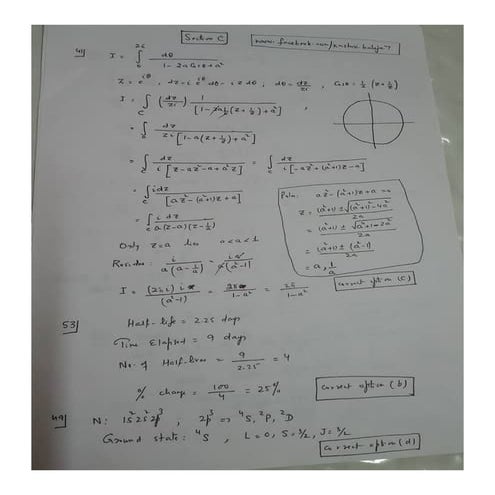 Section C
41) I = ∫ dθ / 1 - 2a Cosθ + a²
z = e^{iθ}, dz = i e^{iθ} dθ = iz dθ, dθ = dz/zi, Cosθ = ½ (z + 1/z)
I = ∫_C (dz/zi) 1 / [1 - 2a½(z + 1/z) + a²]
= ∫_C dz / zi [1 - a(z + 1/z) + a²]
= ∫_C dz / i [z - az² - a + a²z] = ∫_C dz / i [-az² + (a²+1)z - a]
= ∫_C i dz / [az² - (a²+1)z + a]
= ∫_C i dz / a(z-a)(z-1/a)
Poles: az² - (a²+1)z + a = 0
z = (a²+1) ± √(a²+1)² - 4a² / 2a
= (a²+1) ± √a⁴+1-2a² / 2a
= (a²+1) ± (a²-1) / 2a
= a, 1/a
Only z=a lies
Residue: i / a(a - 1/a) = i a / a(a²-1)
I = (2πi) i / (a²-1) = 2π / 1-a² = 2π / 1-a²
correct option (c)
53) Half-life = 2.25 days
Time Elapsed = 9 days
No. of Half-lives = 9 / 2.25 = 4
% change = 100 / 4 = 25%
correct option (b)
49) N: 1s² 2s² 2p³, 2p³ ⇒ ⁴S, ²P, ²D
Ground state: ⁴S, L = 0, S = 3/2, J = 3/2
correct option (d)